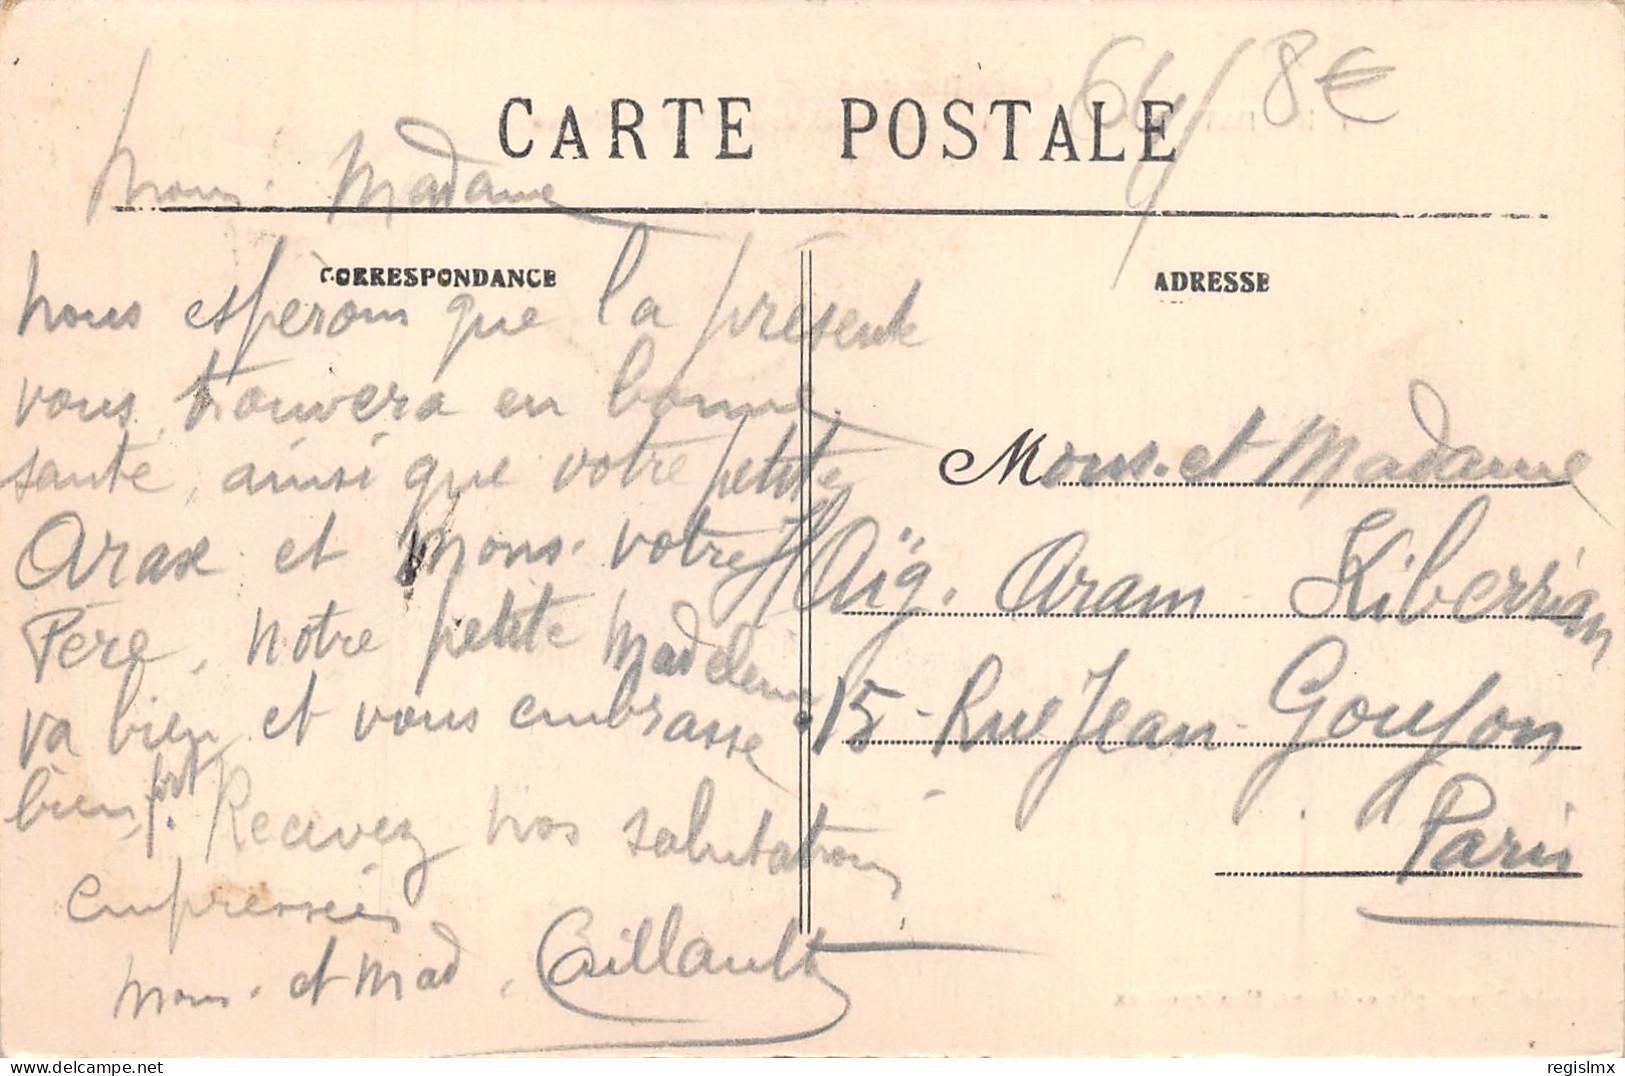 64/ 8€
CARTE POSTALE
Mons. Madame
CORRESPONDANCE
nous espèrons que la présente
vous trouvera en bonne
santé, ainsi que votre petite
Arax et Mons. votre
Père, notre petite Madeleine
va bien et vous embrasse
bien frt. Recevez nos salutations
empressées
Mons. et Mad. Caillault
ADRESSE
Mons. et Madame
Haïg. Aram Kiberrian
15 - Rue Jean - Goujon
Paris
regislmx